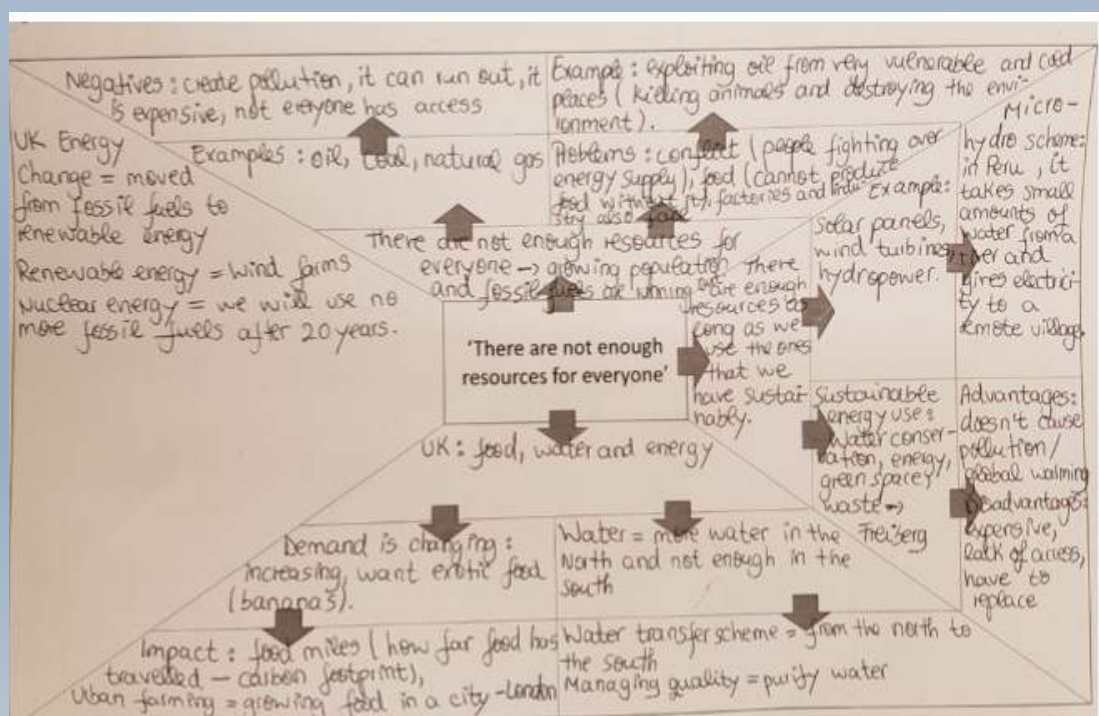 Negatives: create pollution, it can run out, it
is expensive, not everyone has access
Example: exploiting oil from very vulnerable and cold
places (killing animals and destroying the envi-
ronment).
UK Energy
Change = moved
from fossil fuels to
renewable energy
Renewable energy = wind farms
Nuclear energy = we will use no
more fossil fuels after 20 years.
Examples: oil, coal, natural gas
Problems: conflict (people fighting over
energy supply), food (cannot produce
food without it), factories and indu
stry also
There are not enough resources for
everyone → growing population
and fossil fuels are running
'There are not enough
resources for everyone'
There
are enough
resources as
long as we
use the ones
that we
have sustai-
nably.
Example:
Solar panels,
wind turbines,
hydropower.
Micro-
hydro scheme:
in Peru, it
takes small
amounts of
water from a
river and
gives electrici-
ty to a
remote village
Sustainable
energy use:
Water conser-
vation, energy,
green space,
waste →
Freiberg
Advantages:
doesn't cause
pollution/
global warming
Disadvantages:
expensive,
lack of access,
have to
replace
UK: food, water and energy
Demand is changing:
increasing, want exotic food
(bananas).
Water = more water in the
North and not enough in the
south
Impact: food miles (how far food has
travelled – carbon footprint),
Urban farming = growing food in a city - London
Water transfer scheme = from the north to
the south
Managing quality = purify water